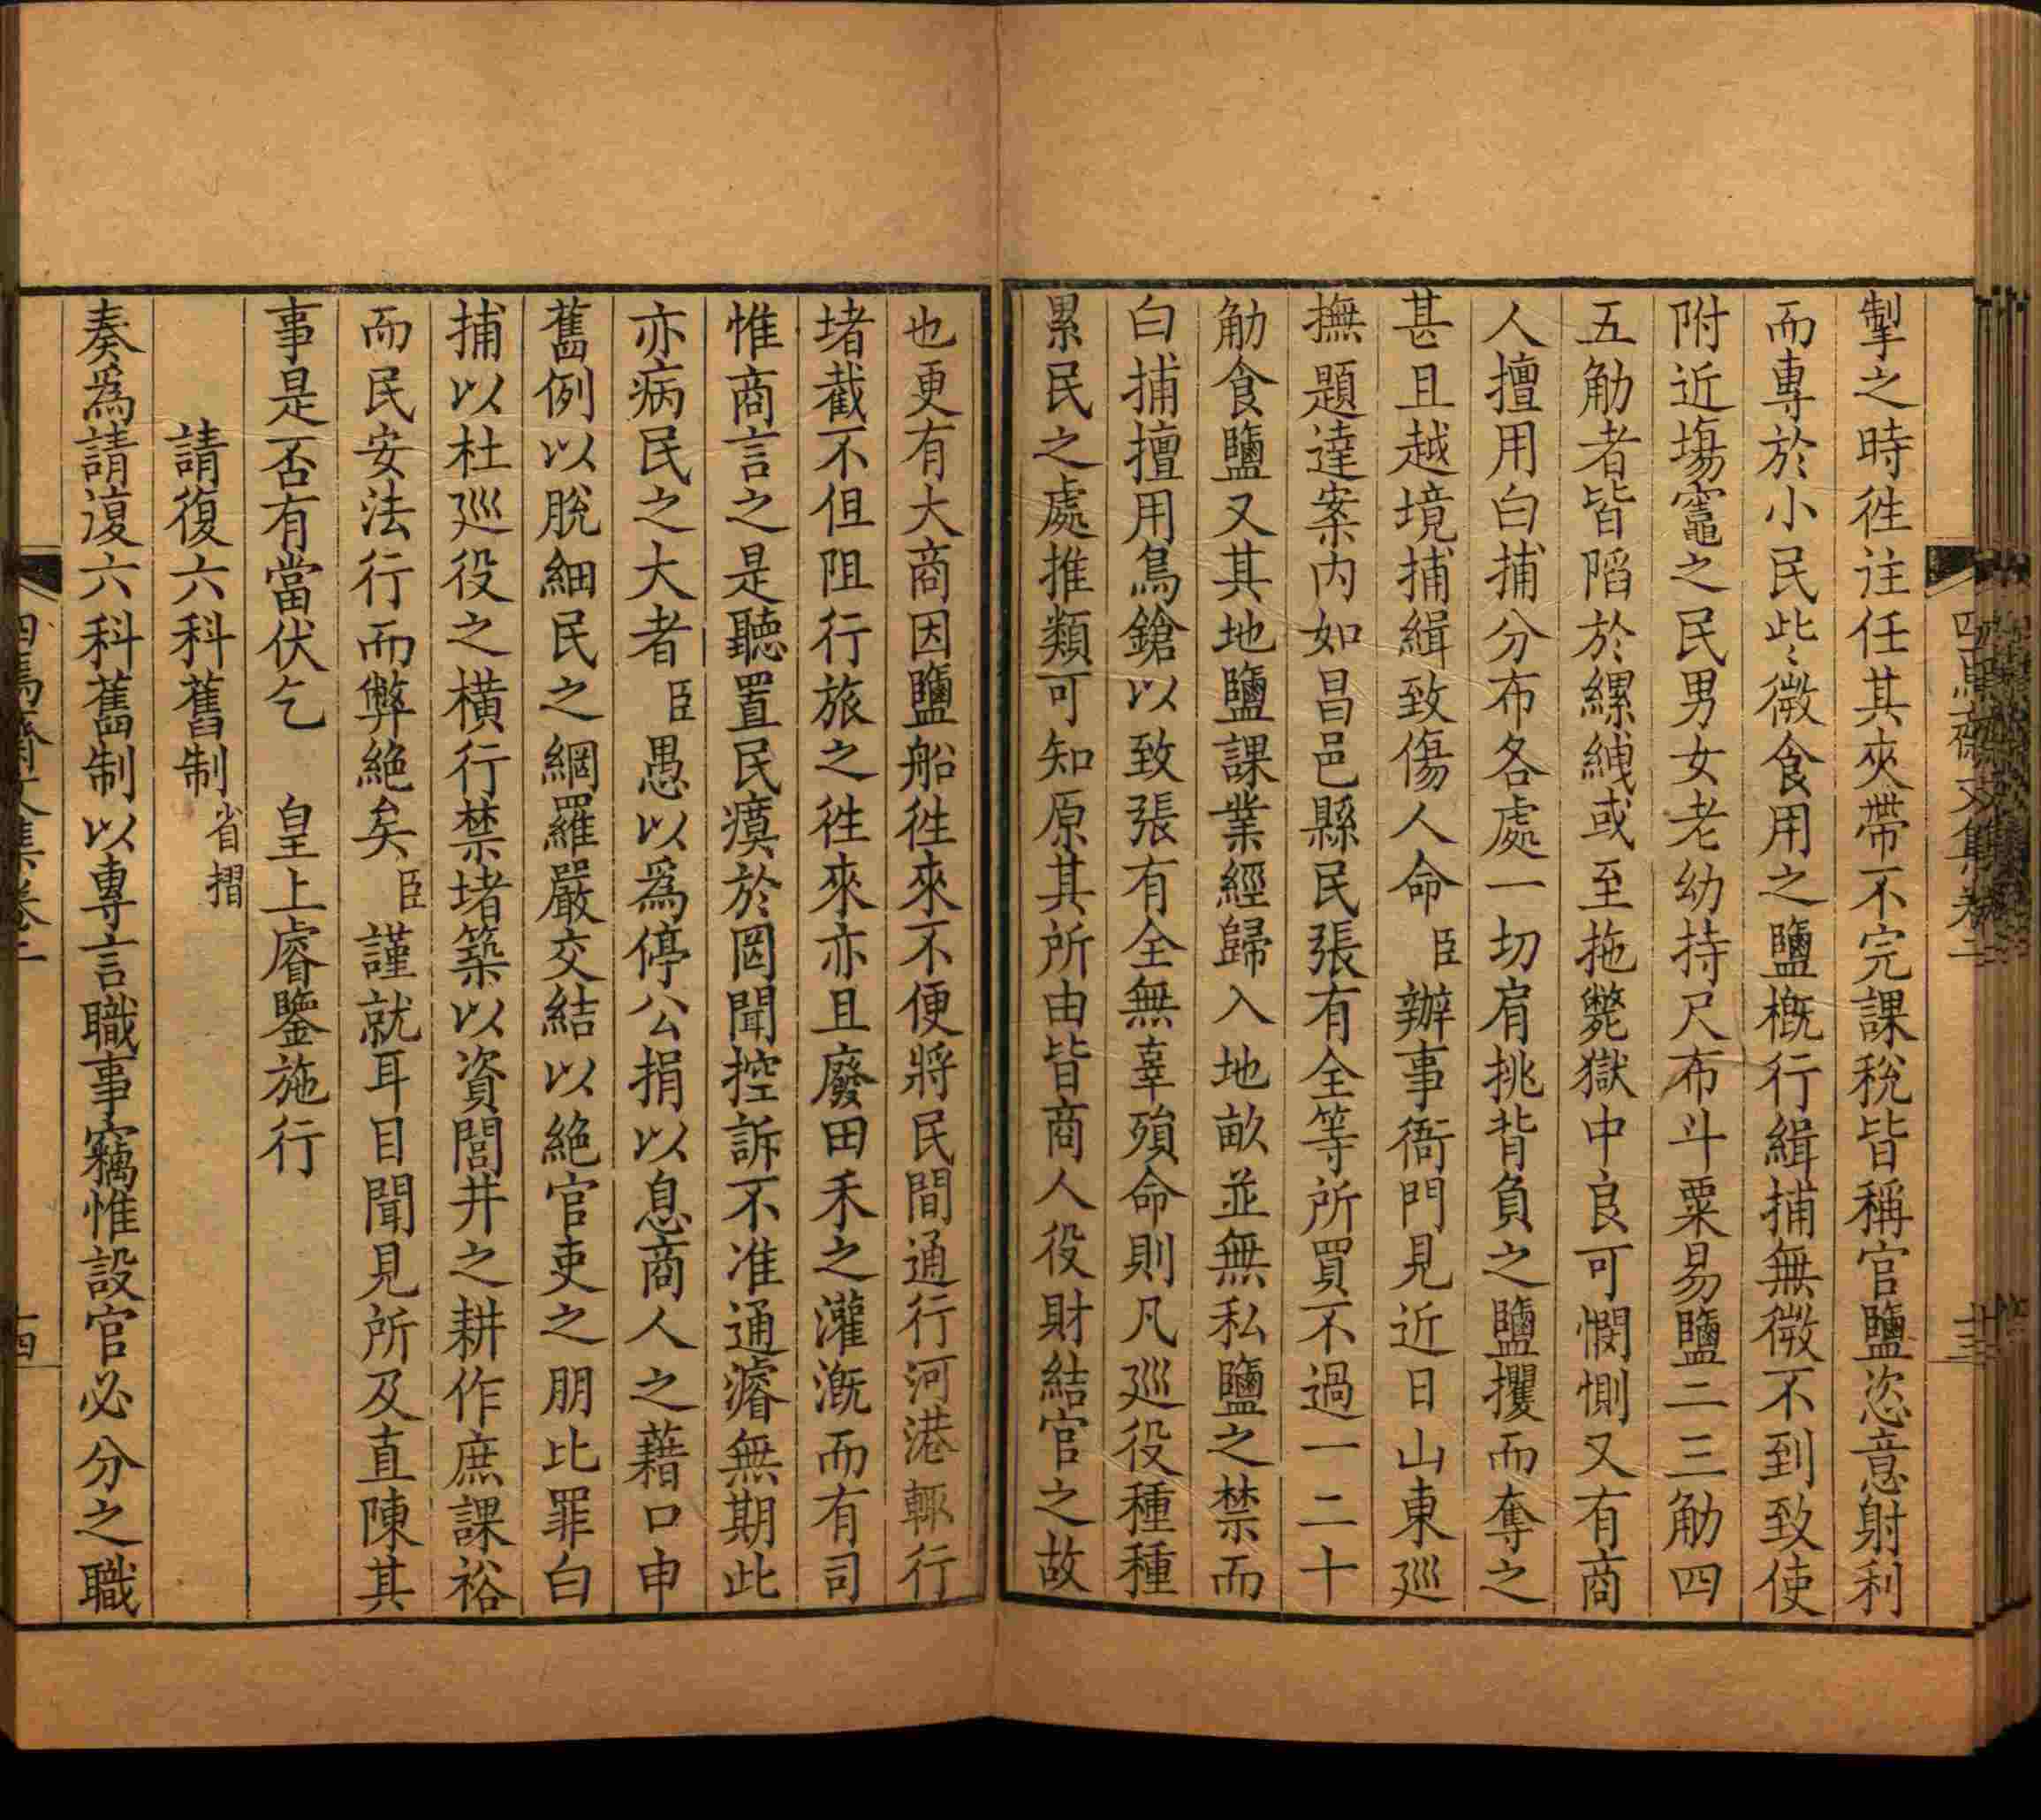 四焉齋文集卷二
十三
掣之時徃注任其夾帶不完課稅皆稱官鹽恣意射利
而專於小民些微食用之鹽槪行緝捕無微不到致使
附近塲竈之民男女老幼持尺布斗粟易鹽二三觔四
五觔者皆陷於縲絏或至拖斃獄中良可憫惻又有商
人擅用白捕分布各處一切肩挑背負之鹽攫而奪之
甚且越境捕緝致傷人命臣辦事衙門見近日山東巡
撫題達案内如昌邑縣民張有全等所買不過一二十
觔食鹽又其地鹽課業經歸入地畝並無私鹽之禁而
白捕擅用鳥鎗以致張有全無辜殞命則凡巡役種種
累民之處推類可知原其所由皆商人役財結官之故
也更有大商因鹽船徃來不便將民間通行河港輒行
堵截不但阻行旅之徃來亦且廢田禾之灌漑而有司
惟商言之是聽置民瘼於罔聞控訴不准通濬無期此
亦病民之大者臣愚以爲停公捐以息商人之藉口申
舊例以脫細民之網羅嚴交結以絶官吏之朋比罪白
捕以杜巡役之橫行禁堵築以資閭井之耕作庶課裕
而民安法行而弊絶矣臣謹就耳目聞見所及直陳其
事是否有當伏乞　皇上睿鑒施行
請復六科舊制省摺
奏爲請復六科舊制以專言職事竊惟設官必分之職
四焉齋文集卷二
十四